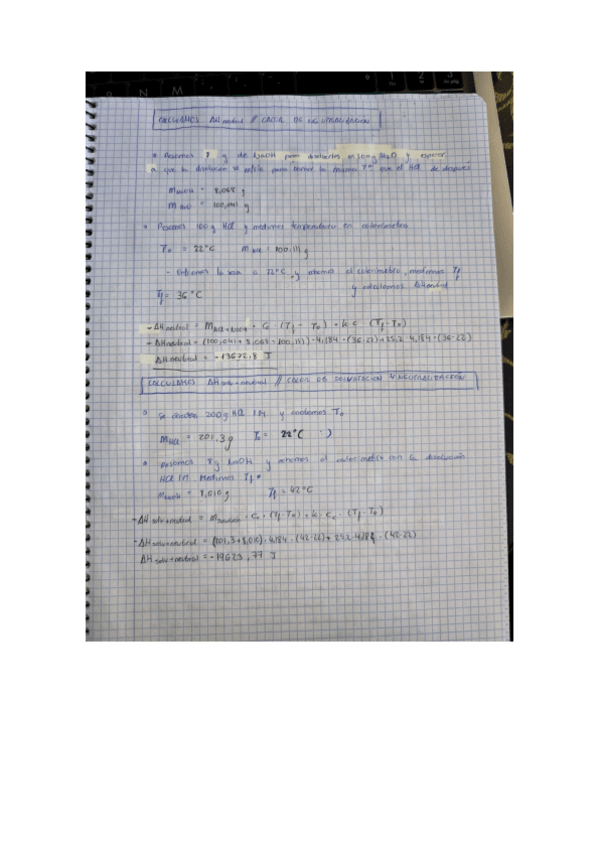 CALCULAMOS ΔH neutral // CALOR DE NEUTRALIZACIÓN
• Pesamos 8 g de NaOH para disolverlos en 100 g H2O y esperar
a que la disolución se enfríe para tomar la misma Tª que el HCl de después
m NaOH = 8,068 g
m H2O = 100,041 g
• Pesamos 100 g HCl y medimos temperatura en calorímetro
T0 = 22°C m HCl = 100,111 g
- Enfriamos la sosa a 22°C, y añadimos al calorímetro, medimos Tf
y calculamos ΔHneutral
Tf = 36 °C
- ΔHneutral = M HCl+NaOH · Ce · (Tf - T0) + k · c (Tf - T0)
- ΔHneutral = (100,041 + 8,068 + 100,111) · 4,184 · (36-22) + 25,2 · 4,184 · (36-22)
ΔHneutral = -13672,8 J
CALCULAMOS ΔH solv+neutral // CALOR DE DISOLUCIÓN Y NEUTRALIZACIÓN
• Se 200 g HCl 1M y anotamos T0
M HCl = 201,3 g T0 = 22°C
• Pesamos 8 g NaOH y añadimos al calorímetro con la disolución
HCl 1M. Medimos Tf
M NaOH = 8,010 g Tf = 42°C
- ΔH solv+neutral = m · Ce · (Tf - T0) + k · Ce · (Tf - T0)
- ΔH solv+neutral = (201,3 + 8,010) · 4,184 · (42-22) + · (42-22)
ΔH solv+neutral = -19623,77 J